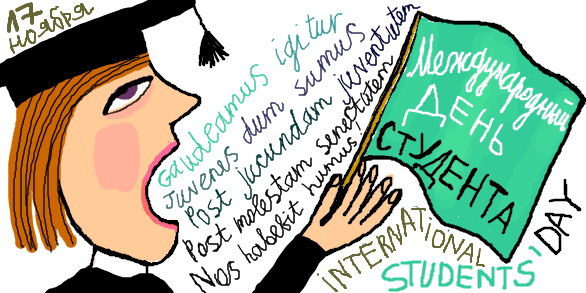 17
НОЯБРЯ
Gaudeamus igitur
Juvenes dum sumus
Post jucundam juventutem
Post molestam senectutem
Nos habebit humus!
Международный
ДЕНЬ
СТУДЕНТА
INTERNATIONAL
STUDENTS' DAY